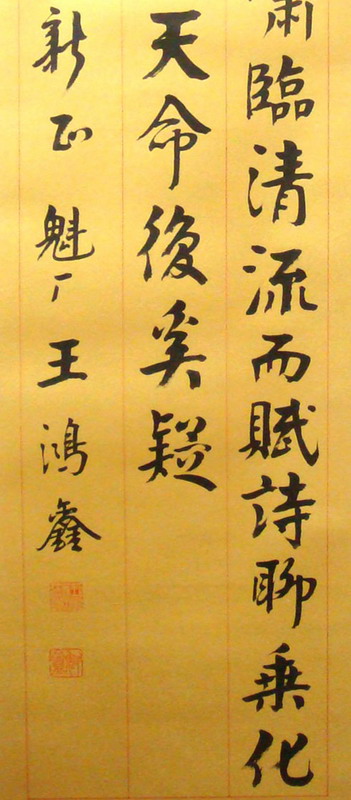 臨清流而賦詩聊乘化
天命復奚疑
新正 魁厂 王鴻鑫